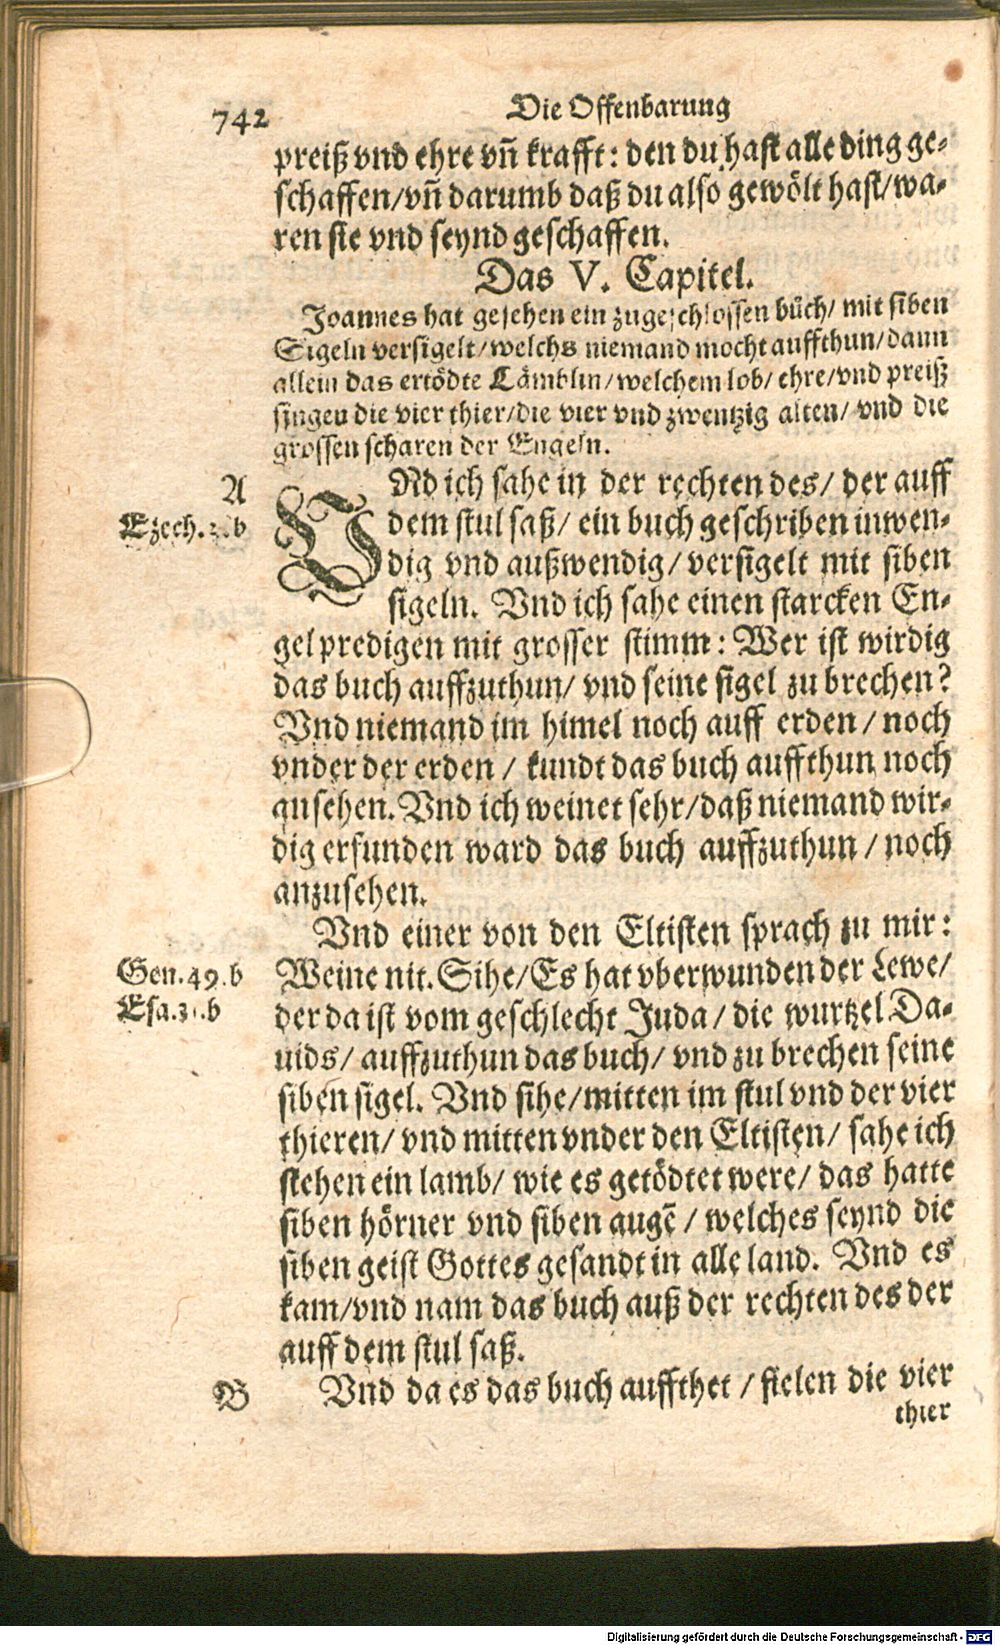 742
Die Offenbarung
preiß vnd ehre vn̄ krafft: den du hast alle ding ge-
schaffen/vn̄ darumb daß du also gewölt hast/wa-
ren sie vnd seynd geschaffen.
Das V. Capitel.
Joannes hat gesehen ein zugeschlossen bůch/ mit siben
Sigeln versigelt/welchs niemand mocht auffthun/dann
allein das ertödte Lämblin/welchem lob/ ehre/vnd preiß
singen die vier thier/die vier vnd zwentzig alten/ vnd die
grossen scharen der Engeln.
A
VNd ich sahe in der rechten des/ der auff
Ezech. b
dem stul saß/ ein buch geschriben inwen-
dig vnd außwendig/ versigelt mit siben
sigeln. Vnd ich sahe einen starcken En-
gel predigen mit grosser stimm: Wer ist wirdig
das buch auffzuthun/ vnd seine sigel zu brechen?
Vnd niemand im himel noch auff erden / noch
vnder der erden / kundt das buch auffthun noch
ansehen. Vnd ich weinet sehr/daß niemand wir-
dig erfunden ward das buch auffzuthun / noch
anzusehen.
Vnd einer von den Eltisten sprach zu mir:
Gen. 49. b
Weine nit. Sihe/Es hat vberwunden der Lewe/
Esa. b
der da ist vom geschlecht Juda / die wurtzel Da-
uids/ auffzuthun das buch/ vnd zu brechen seine
siben sigel. Vnd sihe/mitten im stul vnd der vier
thieren/ vnd mitten vnder den Eltisten/ sahe ich
stehen ein lamb/ wie es getödtet were/ das hatte
siben hörner vnd siben augē / welches seynd die
siben geist Gottes gesandt in alle land. Vnd es
kam/vnd nam das buch auß der rechten des der
auff dem stul saß.
B
Vnd da es das buch auffthet / fielen die vier
thier
Digitalisierung gefördert durch die Deutsche Forschungsgemeinschaft - DFG